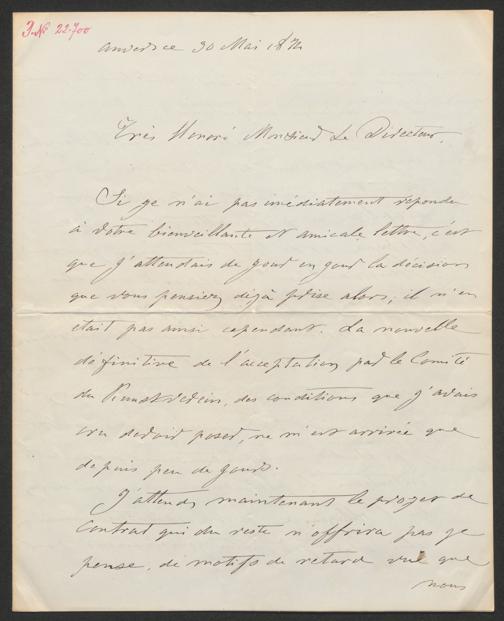 J. No 22.700
Anvers ce 30 Mai
Très Honoré Monsieur Le Directeur,
Si je n'ai pas imédiatement répondu
à votre bienveillante et amicale lettre, c'est
que j'attendais de jour en jour la décision
que vous pensiez déjà prise alors, il n'en
était pas ainsi cependant. La nouvelle
définitive de l'acceptation par le Comité
du Kunstverein, des conditions que j'avais
cru devoir poser, ne m'est arrivée que
depuis peu de jours.
J'attends maintenant le projet de
Contrat qui du reste n'offrira pas je
pense, de motifs de retard vu que
nous